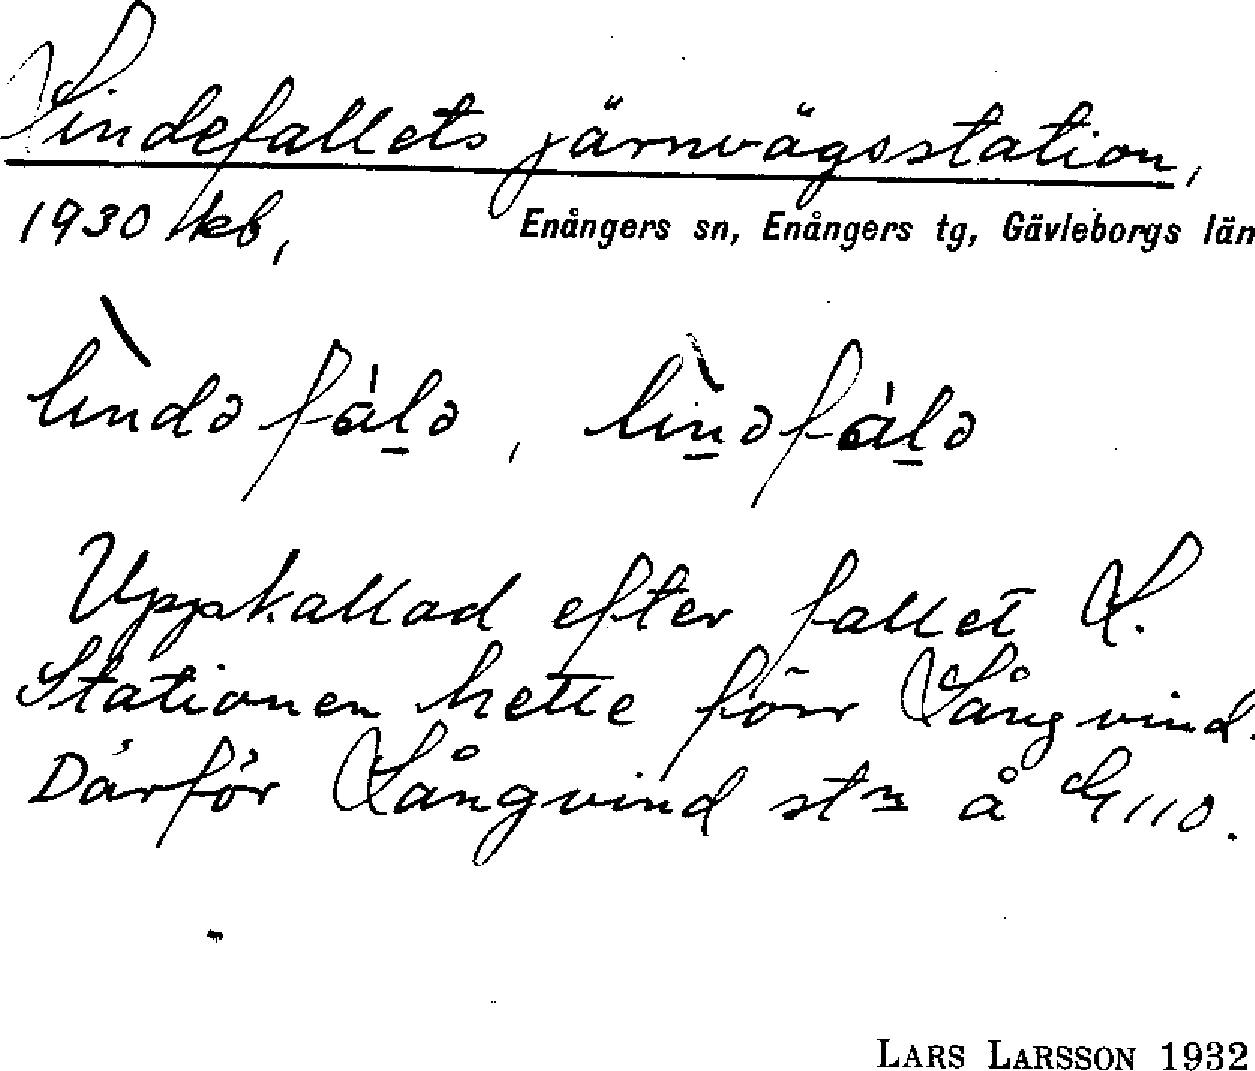 Lindefallets järnvägsstation,
1930 /kb, Enångers sn, Enångers tg, Gävleborgs län
lìndəfálə, lìnəfálə
Uppkallad efter fallet L.
Stationen hette förr Långvind.
Därför Långvind stn å G 110.
LARS LARSSON 1932